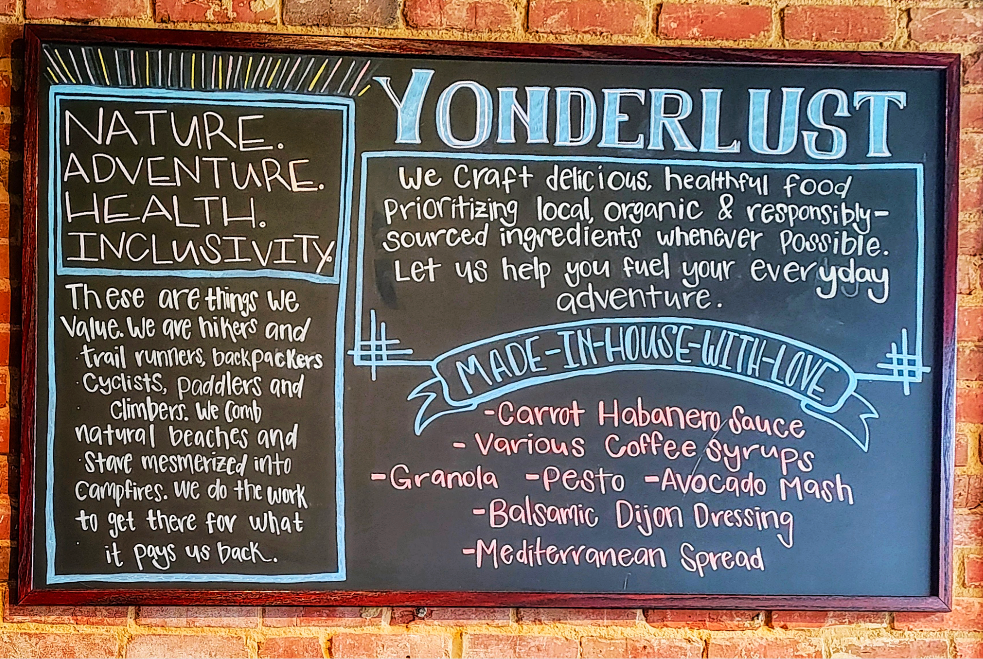 NATURE.
ADVENTURE.
HEALTH.
INCLUSIVITY
These are things we
value. We are hikers and
trail runners, backpackers
cyclists, paddlers and
climbers. We comb
natural beaches and
stare mesmerized into
campfires. We do the work
to get there for what
it pays us back.
YONDERLUST
We craft delicious, healthful food
prioritizing local, organic & responsibly-
sourced ingredients whenever possible.
Let us help you fuel your everyday
adventure.
MADE-IN-HOUSE-WITH-LOVE
-Carrot Habanero Sauce
-Various Coffee Syrups
-Granola -Pesto -Avocado Mash
-Balsamic Dijon Dressing
-Mediterranean Spread